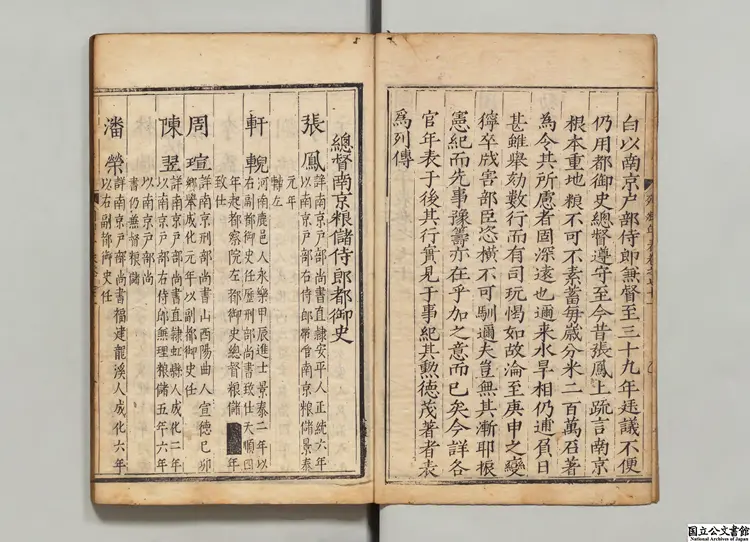 自以南京戶部侍郎兼督至三十九年廷議不便
仍用都御史總督遵守至今昔張鳳上疏言南京
根本重地粮不可不素蓄每歲分米二百萬石著
為令其所慮者固深遠也邇來水旱相仍逋負日
甚雖舉劾數行而有司玩愒如故淪至庚申之變
獰卒戕害部臣恣橫不可馴邇夫豈無其漸耶振
憲紀而先事豫籌亦在乎加之意而已矣今詳各
官年表于後其行實見于事紀其勲德茂著者表
爲列傳
總督南京粮儲侍郎都御史
張鳳
詳南京戶部尚書直隸安平人正統六年
以南京戶部右侍郎帶管南京粮儲景泰
元年
轉左
軒輗
河南鹿邑人永樂甲辰進士景泰二年以
右副都御史任歷刑部尚書致仕天順四
年起都察院左都御史總督粮儲 年
致仕
周瑄
詳南京刑部尚書山西陽曲人宣德己卯
鄉舉成化元年以副都御史任
陳翌
詳南京戶部尚書直隸虹縣人成化二年
以南京戶部右侍郎無理粮儲五年六年
以南京戶部尚
書仍無督粮儲
潘榮
詳南京戶部尚書福建龍溪人成化六年
以右副都御史任
国立公文書館
National Archives of Japan